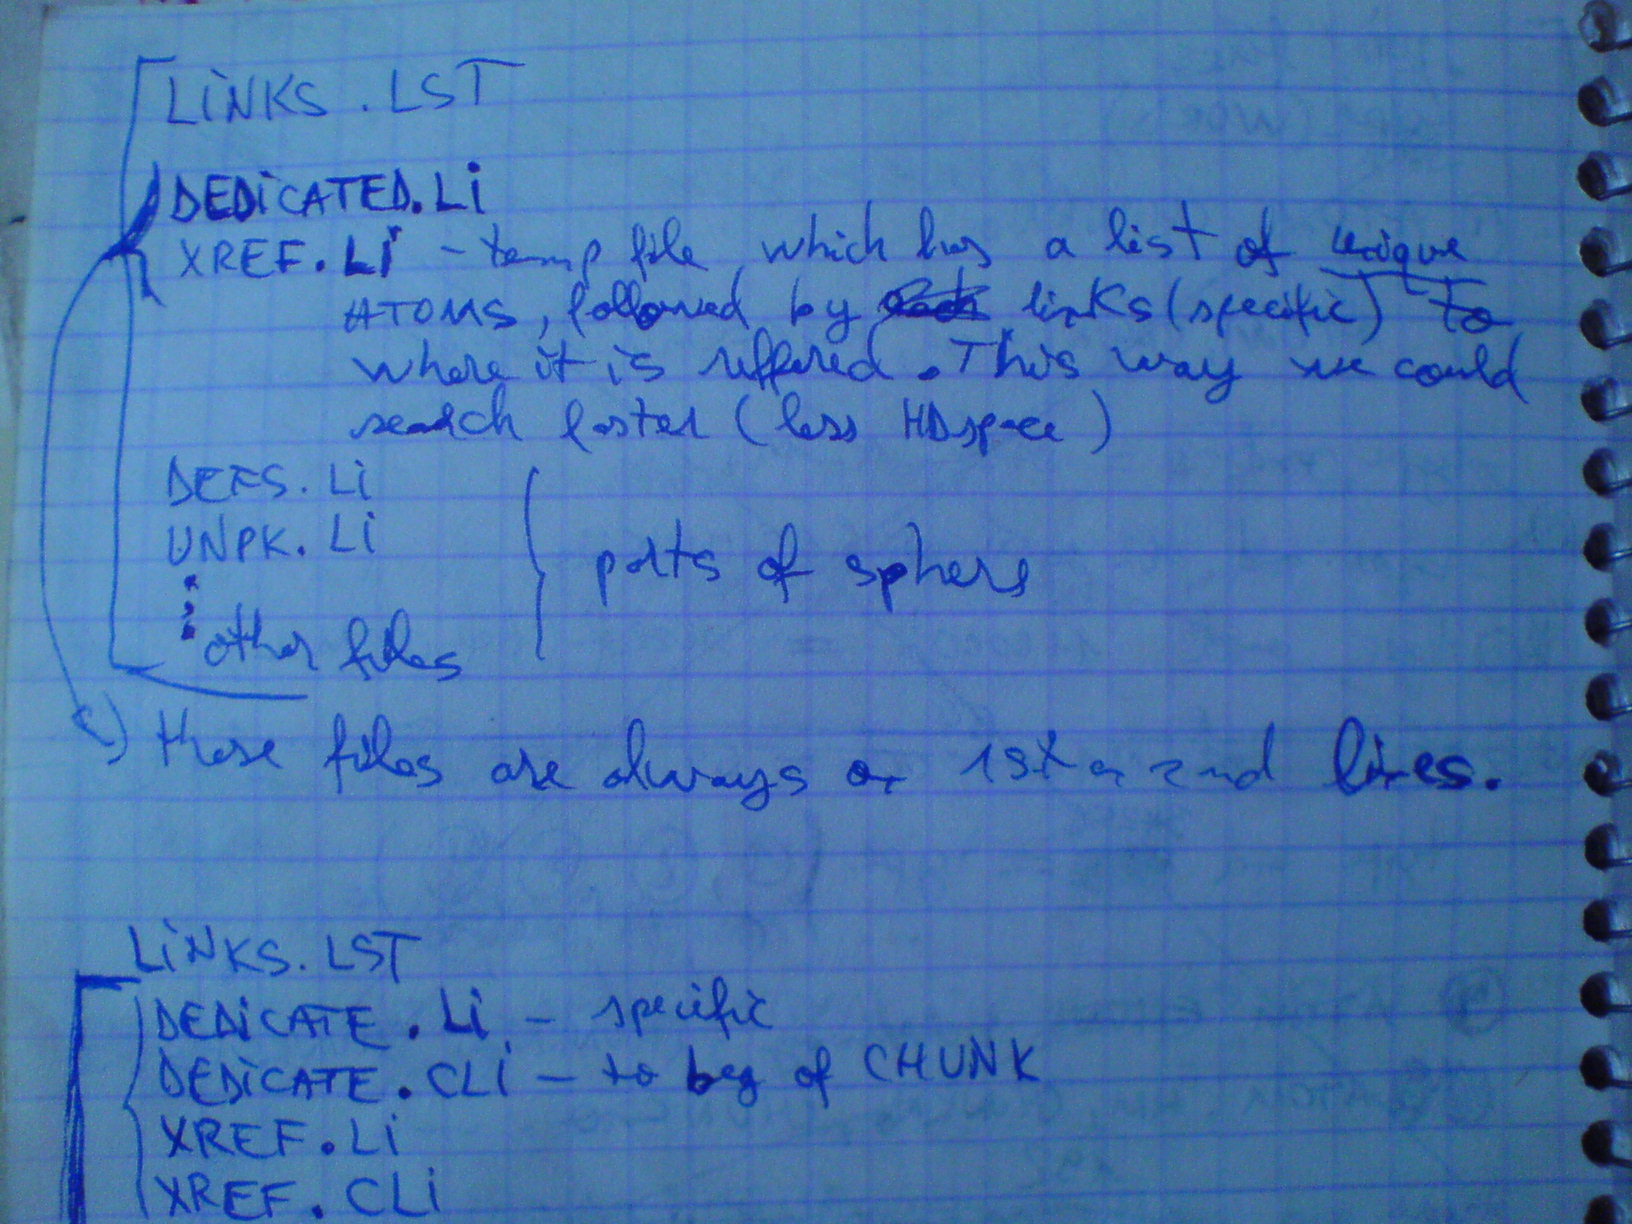 LiNKS.LST
DEDiCATED.Li
XREF.Li - temp file which has a list of unique
ATOMS, followed by links (specific) to
where it is reffered. This way we could
search faster (less HD space)
DEFS.Li
UNPK.Li
other files
parts of sphere
these files are always on 1st and 2nd lines.
LiNKS.LST
DEDiCATE.Li - specific
DEDiCATE.CLi - to beg of CHUNK
XREF.Li
XREF.CLi